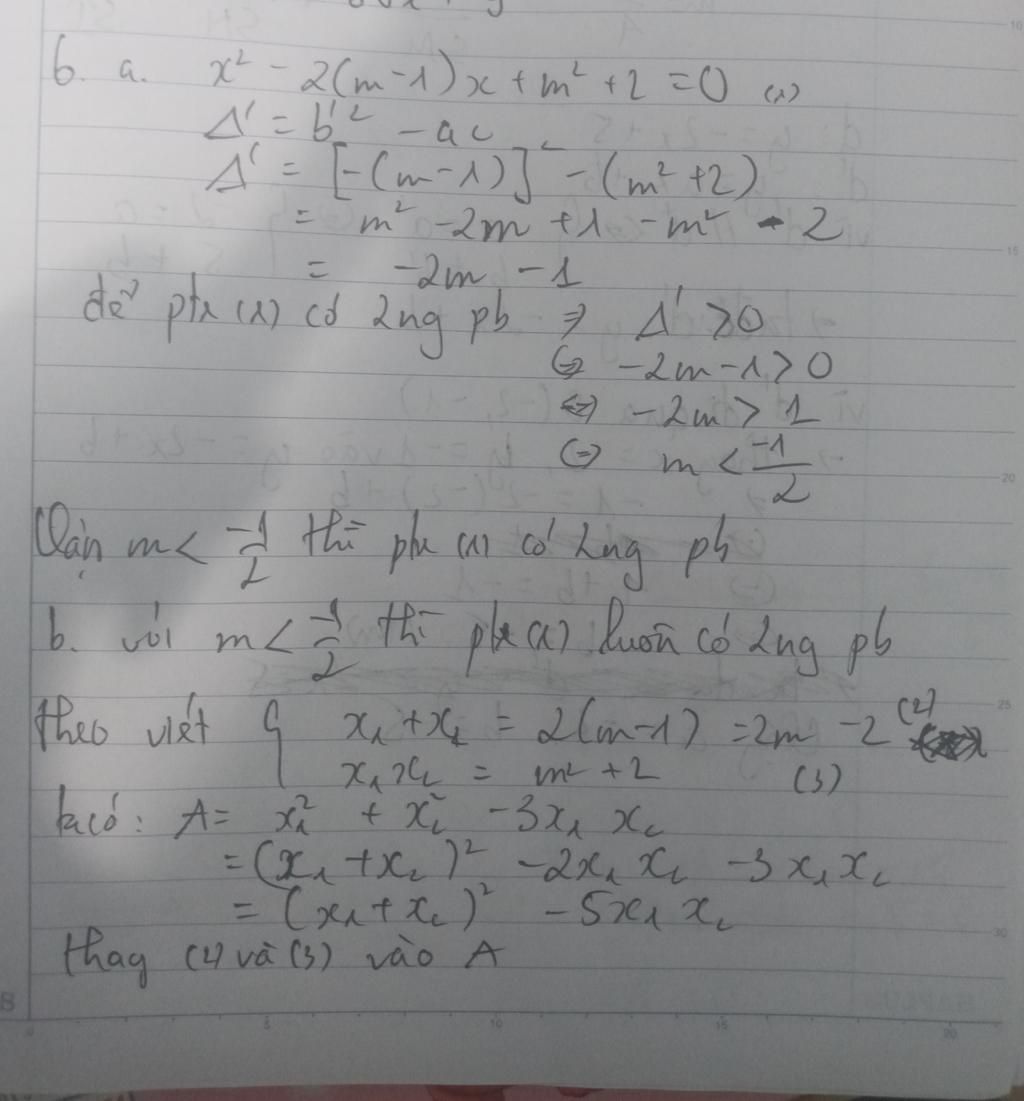 6. a. x² - 2(m-1)x + m² + 2 = 0 (1)
Δ' = b'² - ac
Δ' = [-(m-1)]² - (m²+2)
= m² - 2m + 1 - m² - 2
= -2m - 1
để ptr (1) có 2ng pb ⇒ Δ' > 0
⇔ -2m - 1 > 0
⇔ -2m > 1
⇔ m < -1/2
m < -1/2 thì ptr (1) có 2ng pb
b. với m < -1/2 thì ptr (1) luôn có 2ng pb
theo viét { x₁ + x₂ = 2(m-1) = 2m - 2 (2)
x₁x₂ = m² + 2 (3)
ta có: A = x₁² + x₂² - 3x₁x₂
= (x₁ + x₂)² - 2x₁x₂ - 3x₁x₂
= (x₁ + x₂)² - 5x₁x₂
thay (2) và (3) vào A
10
15
20
25
30
5
10
15
20